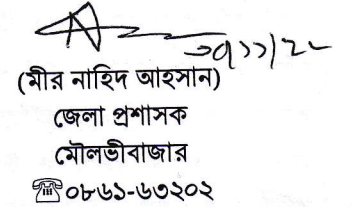 (মীর নাহিদ আহসান)
জেলা প্রশাসক
মৌলভীবাজার
☎০৮৬১-৬৩২০২